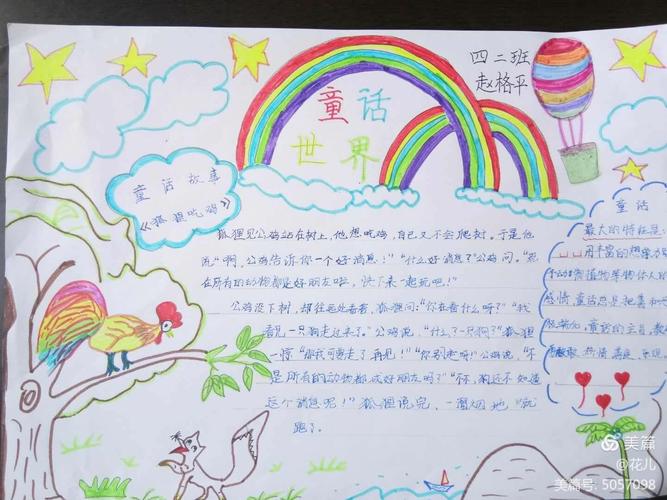 四二班
赵格平
童话
世界
童话故事
《狐狸吃鸡》
狐狸见公鸡站在树上,他想吃鸡,自己又不会爬树,于是他
说“啊,公鸡告诉你一个好消息!”“什么好消息?”公鸡问,“现
在所有的动物都是好朋友啦,快下来一起玩吧!”
公鸡没下树,却往远处看看,狐狸问:“你在看什么呀?”“我
看见一只狗走过来了。”公鸡说,“什么?一只狗?”狐狸
一惊“那我可要走了再见!”“你别走呀!”公鸡说,“不
是所有的动物都成好朋友吗?”“不,狗还不知道
这个消息呢!”狐狸说完,一溜烟地
跑了。
童话
最大的特征是:
用丰富的想象力
植物等物体人的
感情,童话总是把真和
童话的主旨,教
热情
美篇
@花儿
美篇号: 5057098